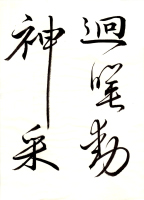 迴眸動
神采